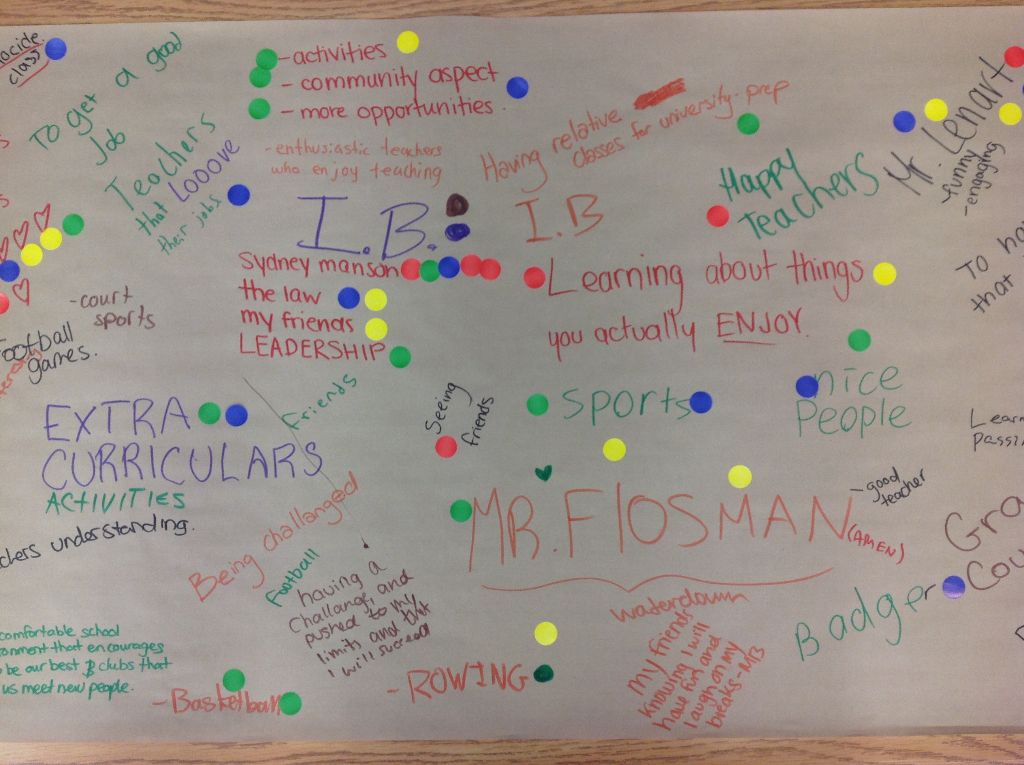 class
To get a good
job
-activities
- community aspect
- more opportunities
-enthusiastic teachers
who enjoy teaching
Having relative
classes for university prep
Teachers
that LOOOVE
their jobs
I.B.
I.B
Happy
Teachers
Mr. Lenart
-funny
-engaging
Sydney manson
the law
my friends
LEADERSHIP
Learning about things
you actually ENJOY.
-court
sports
games.
EXTRA
CURRICULARS
ACTIVITIES
understanding.
Friends
Seeing
friends
Sports
nice
People
MR. FlOSMAN
(AMEN)
-good
teacher
Being challanged
Football
having a
challange, and
pushed to my
limits and that
I will succeed
comfortable school
that encourages
be our best & clubs that
us meet new people.
-Basketball
- ROWING
waterdown
my friends
Knowing I will
have fun and
laugh on my
breaks-MB
Badger
To
that